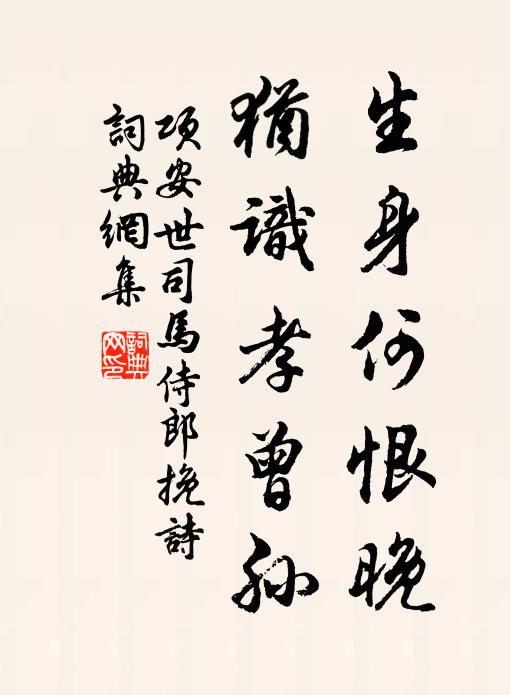 生身何恨晚
猶識孝曾孫
項安世司馬侍郎挽詩
詞典網集
詞典網印